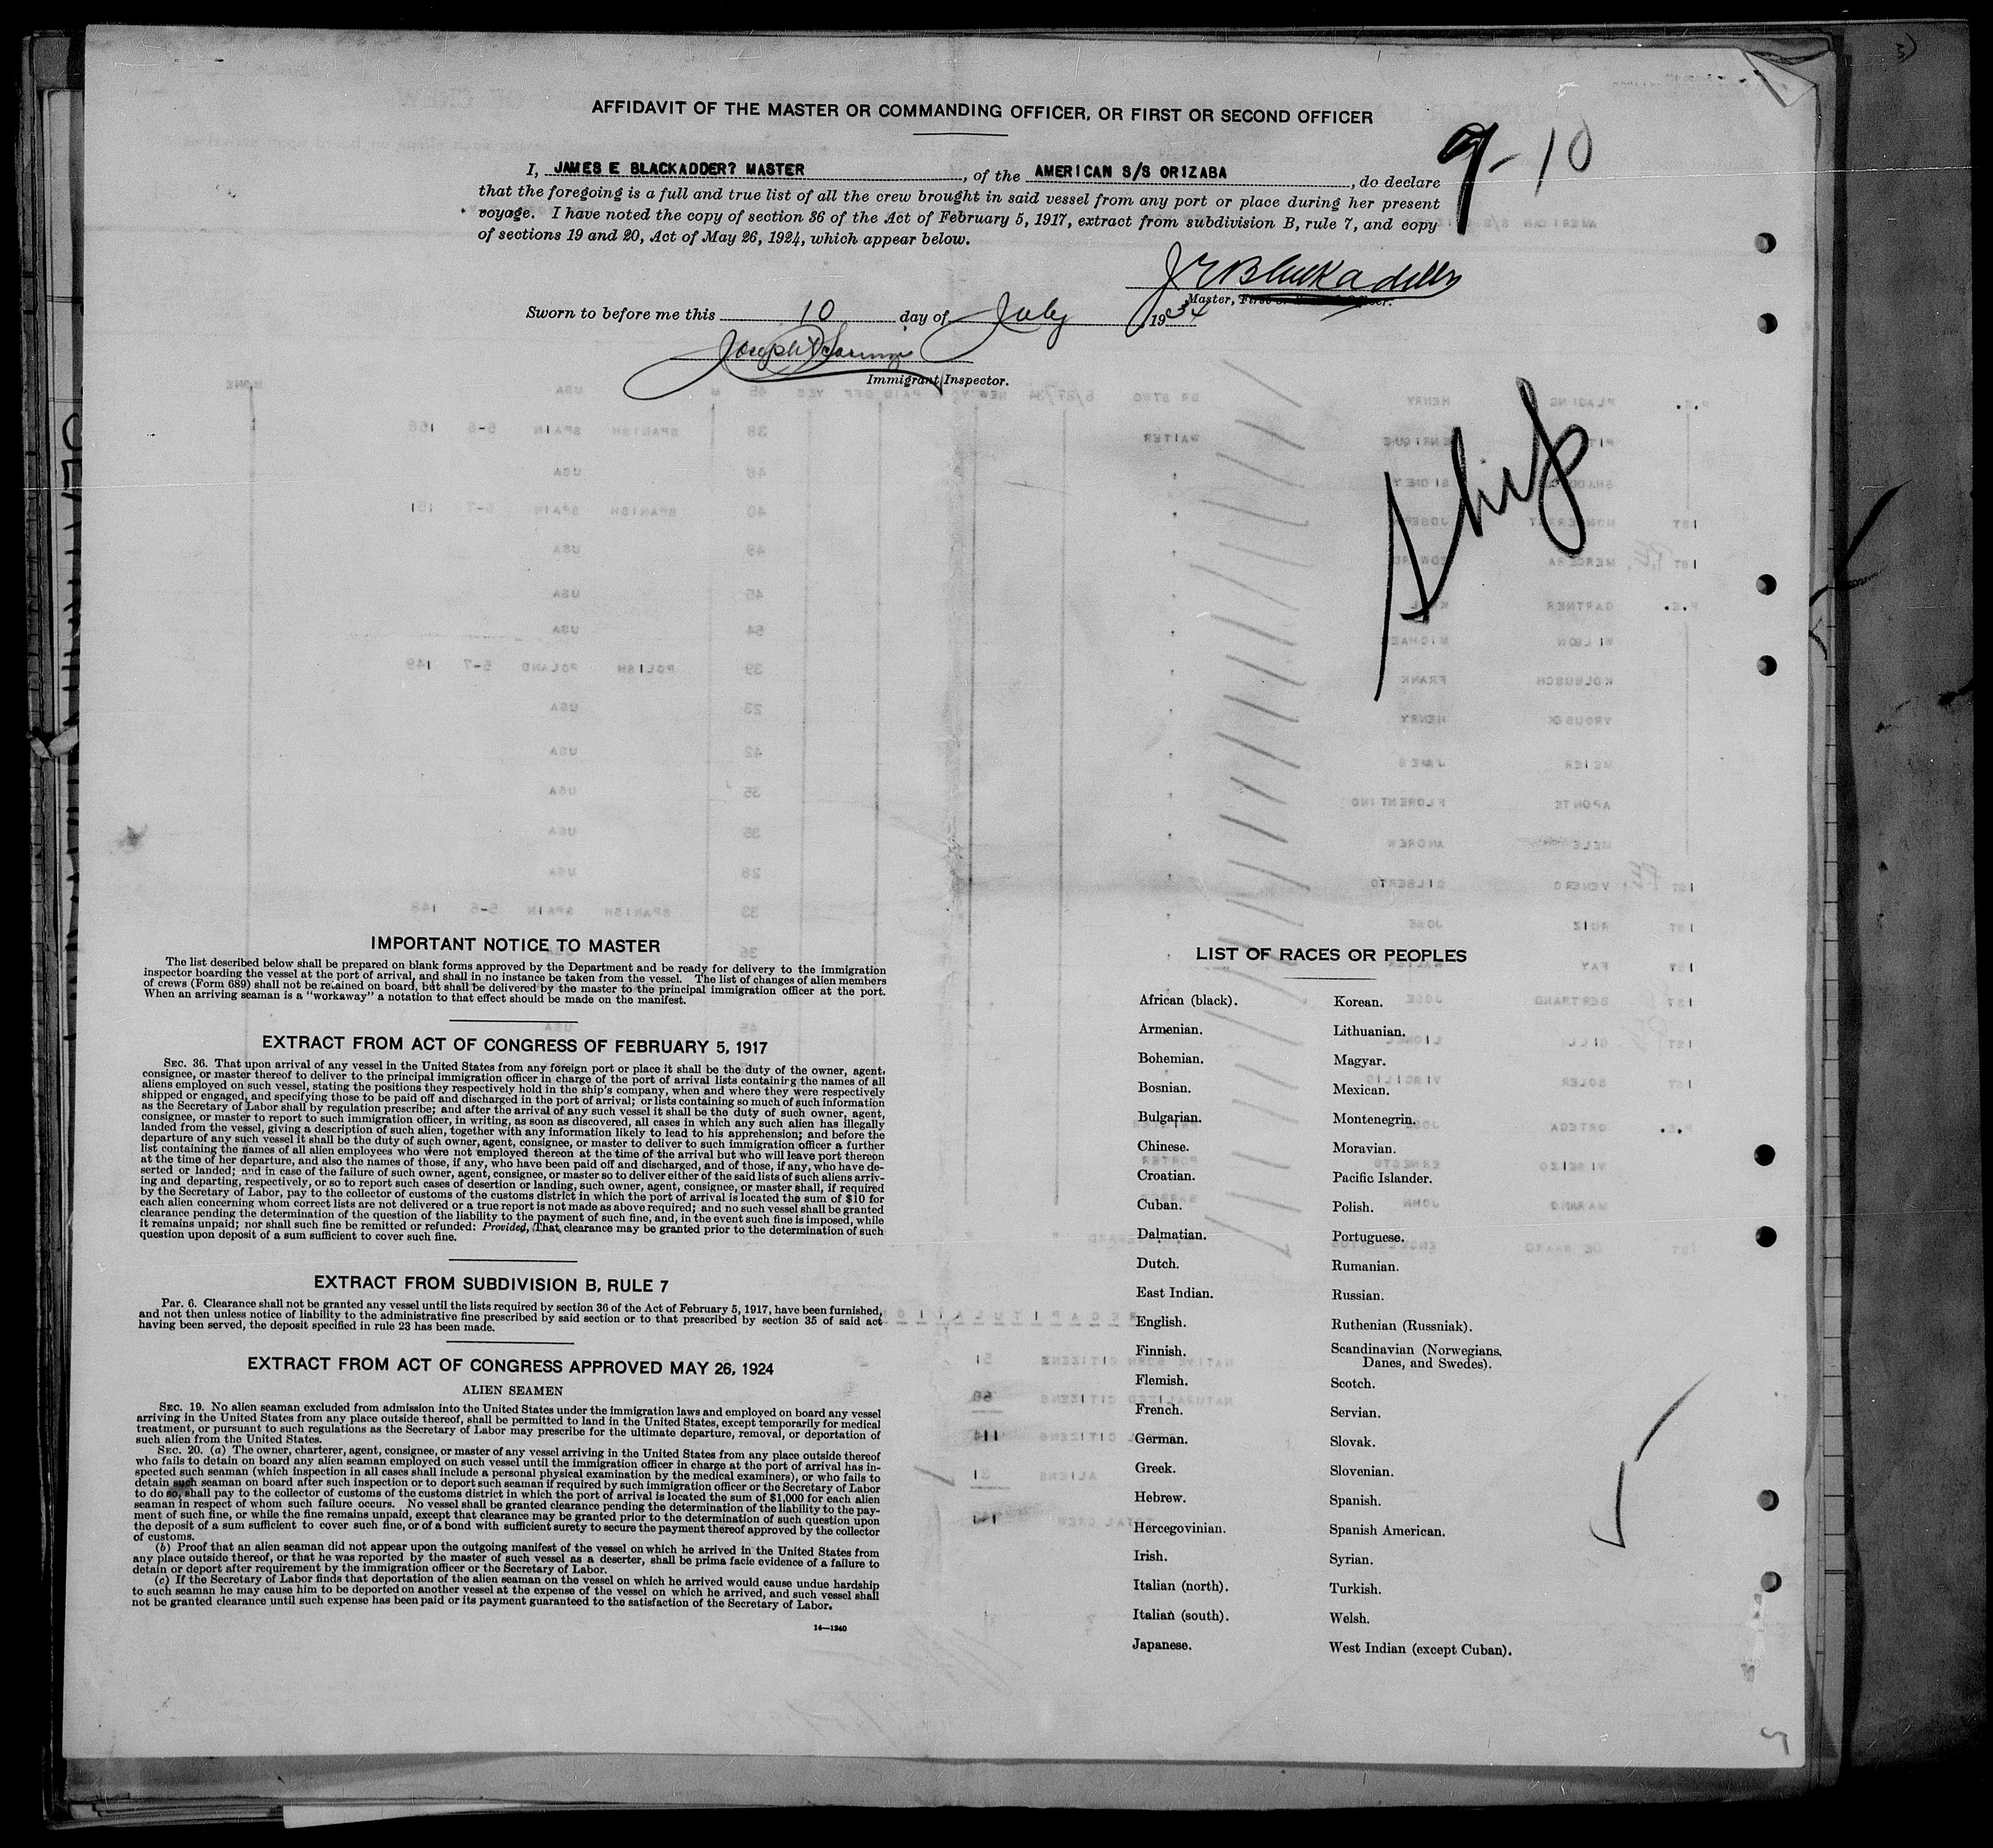 AFFIDAVIT OF THE MASTER OR COMMANDING OFFICER, OR FIRST OR SECOND OFFICER
9-10
I, JAMES E BLACKADDER? MASTER, of the AMERICAN S/S ORIZABA, do declare
that the foregoing is a full and true list of all the crew brought in said vessel from any port or place during her present
voyage. I have noted the copy of section 36 of the Act of February 5, 1917, extract from subdivision B, rule 7, and copy
of sections 19 and 20, Act of May 26, 1924, which appear below.
J E Blackadder
Master, First or Second Officer.
Sworn to before me this 10 day of July 1934
Joseph
Immigrant Inspector.
Ship
IMPORTANT NOTICE TO MASTER
The list described below shall be prepared on blank forms approved by the Department and be ready for delivery to the immigration
inspector boarding the vessel at the port of arrival, and shall in no instance be taken from the vessel. The list of changes of alien members
of crews (Form 689) shall not be retained on board, but shall be delivered by the master to the principal immigration officer at the port.
When an arriving seaman is a "workaway" a notation to that effect should be made on the manifest.
EXTRACT FROM ACT OF CONGRESS OF FEBRUARY 5, 1917
SEC. 36. That upon arrival of any vessel in the United States from any foreign port or place it shall be the duty of the owner, agent,
consignee, or master thereof to deliver to the principal immigration officer in charge of the port of arrival lists containing the names of all
aliens employed on such vessel, stating the positions they respectively hold in the ship's company, when and where they were respectively
shipped or engaged, and specifying those to be paid off and discharged in the port of arrival; or lists containing so much of such information
as the Secretary of Labor shall by regulation prescribe; and after the arrival of any such vessel it shall be the duty of such owner, agent,
consignee, or master to report to such immigration officer, in writing, as soon as discovered, all cases in which any such alien has illegally
landed from the vessel, giving a description of such alien, together with any information likely to lead to his apprehension; and before the
departure of any such vessel it shall be the duty of such owner, agent, consignee, or master to deliver to such immigration officer a further
list containing the names of all alien employees who were not employed thereon at the time of the arrival but who will leave port thereon
at the time of her departure, and also the names of those, if any, who have been paid off and discharged, and of those, if any, who have de-
serted or landed; and in case of the failure of such owner, agent, consignee, or master so to deliver either of the said lists of such aliens arriv-
ing and departing, respectively, or so to report such cases of desertion or landing, such owner, agent, consignee, or master shall, if required
by the Secretary of Labor, pay to the collector of customs of the customs district in which the port of arrival is located the sum of $10 for
each alien concerning whom correct lists are not delivered or a true report is not made as above required; and no such vessel shall be granted
clearance pending the determination of the question of the liability to the payment of such fine, and, in the event such fine is imposed, while
it remains unpaid; nor shall such fine be remitted or refunded: Provided, That clearance may be granted prior to the determination of such
question upon deposit of a sum sufficient to cover such fine.
EXTRACT FROM SUBDIVISION B, RULE 7
Par. 6. Clearance shall not be granted any vessel until the lists required by section 36 of the Act of February 5, 1917, have been furnished,
and not then unless notice of liability to the administrative fine prescribed by said section or to that prescribed by section 35 of said act
having been served, the deposit specified in rule 23 has been made.
EXTRACT FROM ACT OF CONGRESS APPROVED MAY 26, 1924
ALIEN SEAMEN
SEC. 19. No alien seaman excluded from admission into the United States under the immigration laws and employed on board any vessel
arriving in the United States from any place outside thereof, shall be permitted to land in the United States, except temporarily for medical
treatment, or pursuant to such regulations as the Secretary of Labor may prescribe for the ultimate departure, removal, or deportation of
such alien from the United States.
SEC. 20. (a) The owner, charterer, agent, consignee, or master of any vessel arriving in the United States from any place outside thereof
who fails to detain on board any alien seaman employed on such vessel until the immigration officer in charge at the port of arrival has in-
spected such seaman (which inspection in all cases shall include a personal physical examination by the medical examiners), or who fails to
detain such seaman on board after such inspection or to deport such seaman if required by such immigration officer or the Secretary of Labor
to do so, shall pay to the collector of customs of the customs district in which the port of arrival is located the sum of $1,000 for each alien
seaman in respect of whom such failure occurs. No vessel shall be granted clearance pending the determination of the liability to the pay-
ment of such fine, or while the fine remains unpaid, except that clearance may be granted prior to the determination of such question upon
the deposit of a sum sufficient to cover such fine, or of a bond with sufficient surety to secure the payment thereof approved by the collector
of customs.
(b) Proof that an alien seaman did not appear upon the outgoing manifest of the vessel on which he arrived in the United States from
any place outside thereof, or that he was reported by the master of such vessel as a deserter, shall be prima facie evidence of a failure to
detain or deport after requirement by the immigration officer or the Secretary of Labor.
(c) If the Secretary of Labor finds that deportation of the alien seaman on the vessel on which he arrived would cause undue hardship
to such seaman he may cause him to be deported on another vessel at the expense of the vessel on which he arrived, and such vessel shall
not be granted clearance until such expense has been paid or its payment guaranteed to the satisfaction of the Secretary of Labor.
14—1240
LIST OF RACES OR PEOPLES
African (black).
Armenian.
Bohemian.
Bosnian.
Bulgarian.
Chinese.
Croatian.
Cuban.
Dalmatian.
Dutch.
East Indian.
English.
Finnish.
Flemish.
French.
German.
Greek.
Hebrew.
Hercegovinian.
Irish.
Italian (north).
Italian (south).
Japanese.
Korean.
Lithuanian.
Magyar.
Mexican.
Montenegrin.
Moravian.
Pacific Islander.
Polish.
Portuguese.
Rumanian.
Russian.
Ruthenian (Russniak).
Scandinavian (Norwegians,
Danes, and Swedes).
Scotch.
Servian.
Slovak.
Slovenian.
Spanish.
Spanish American.
Syrian.
Turkish.
Welsh.
West Indian (except Cuban).